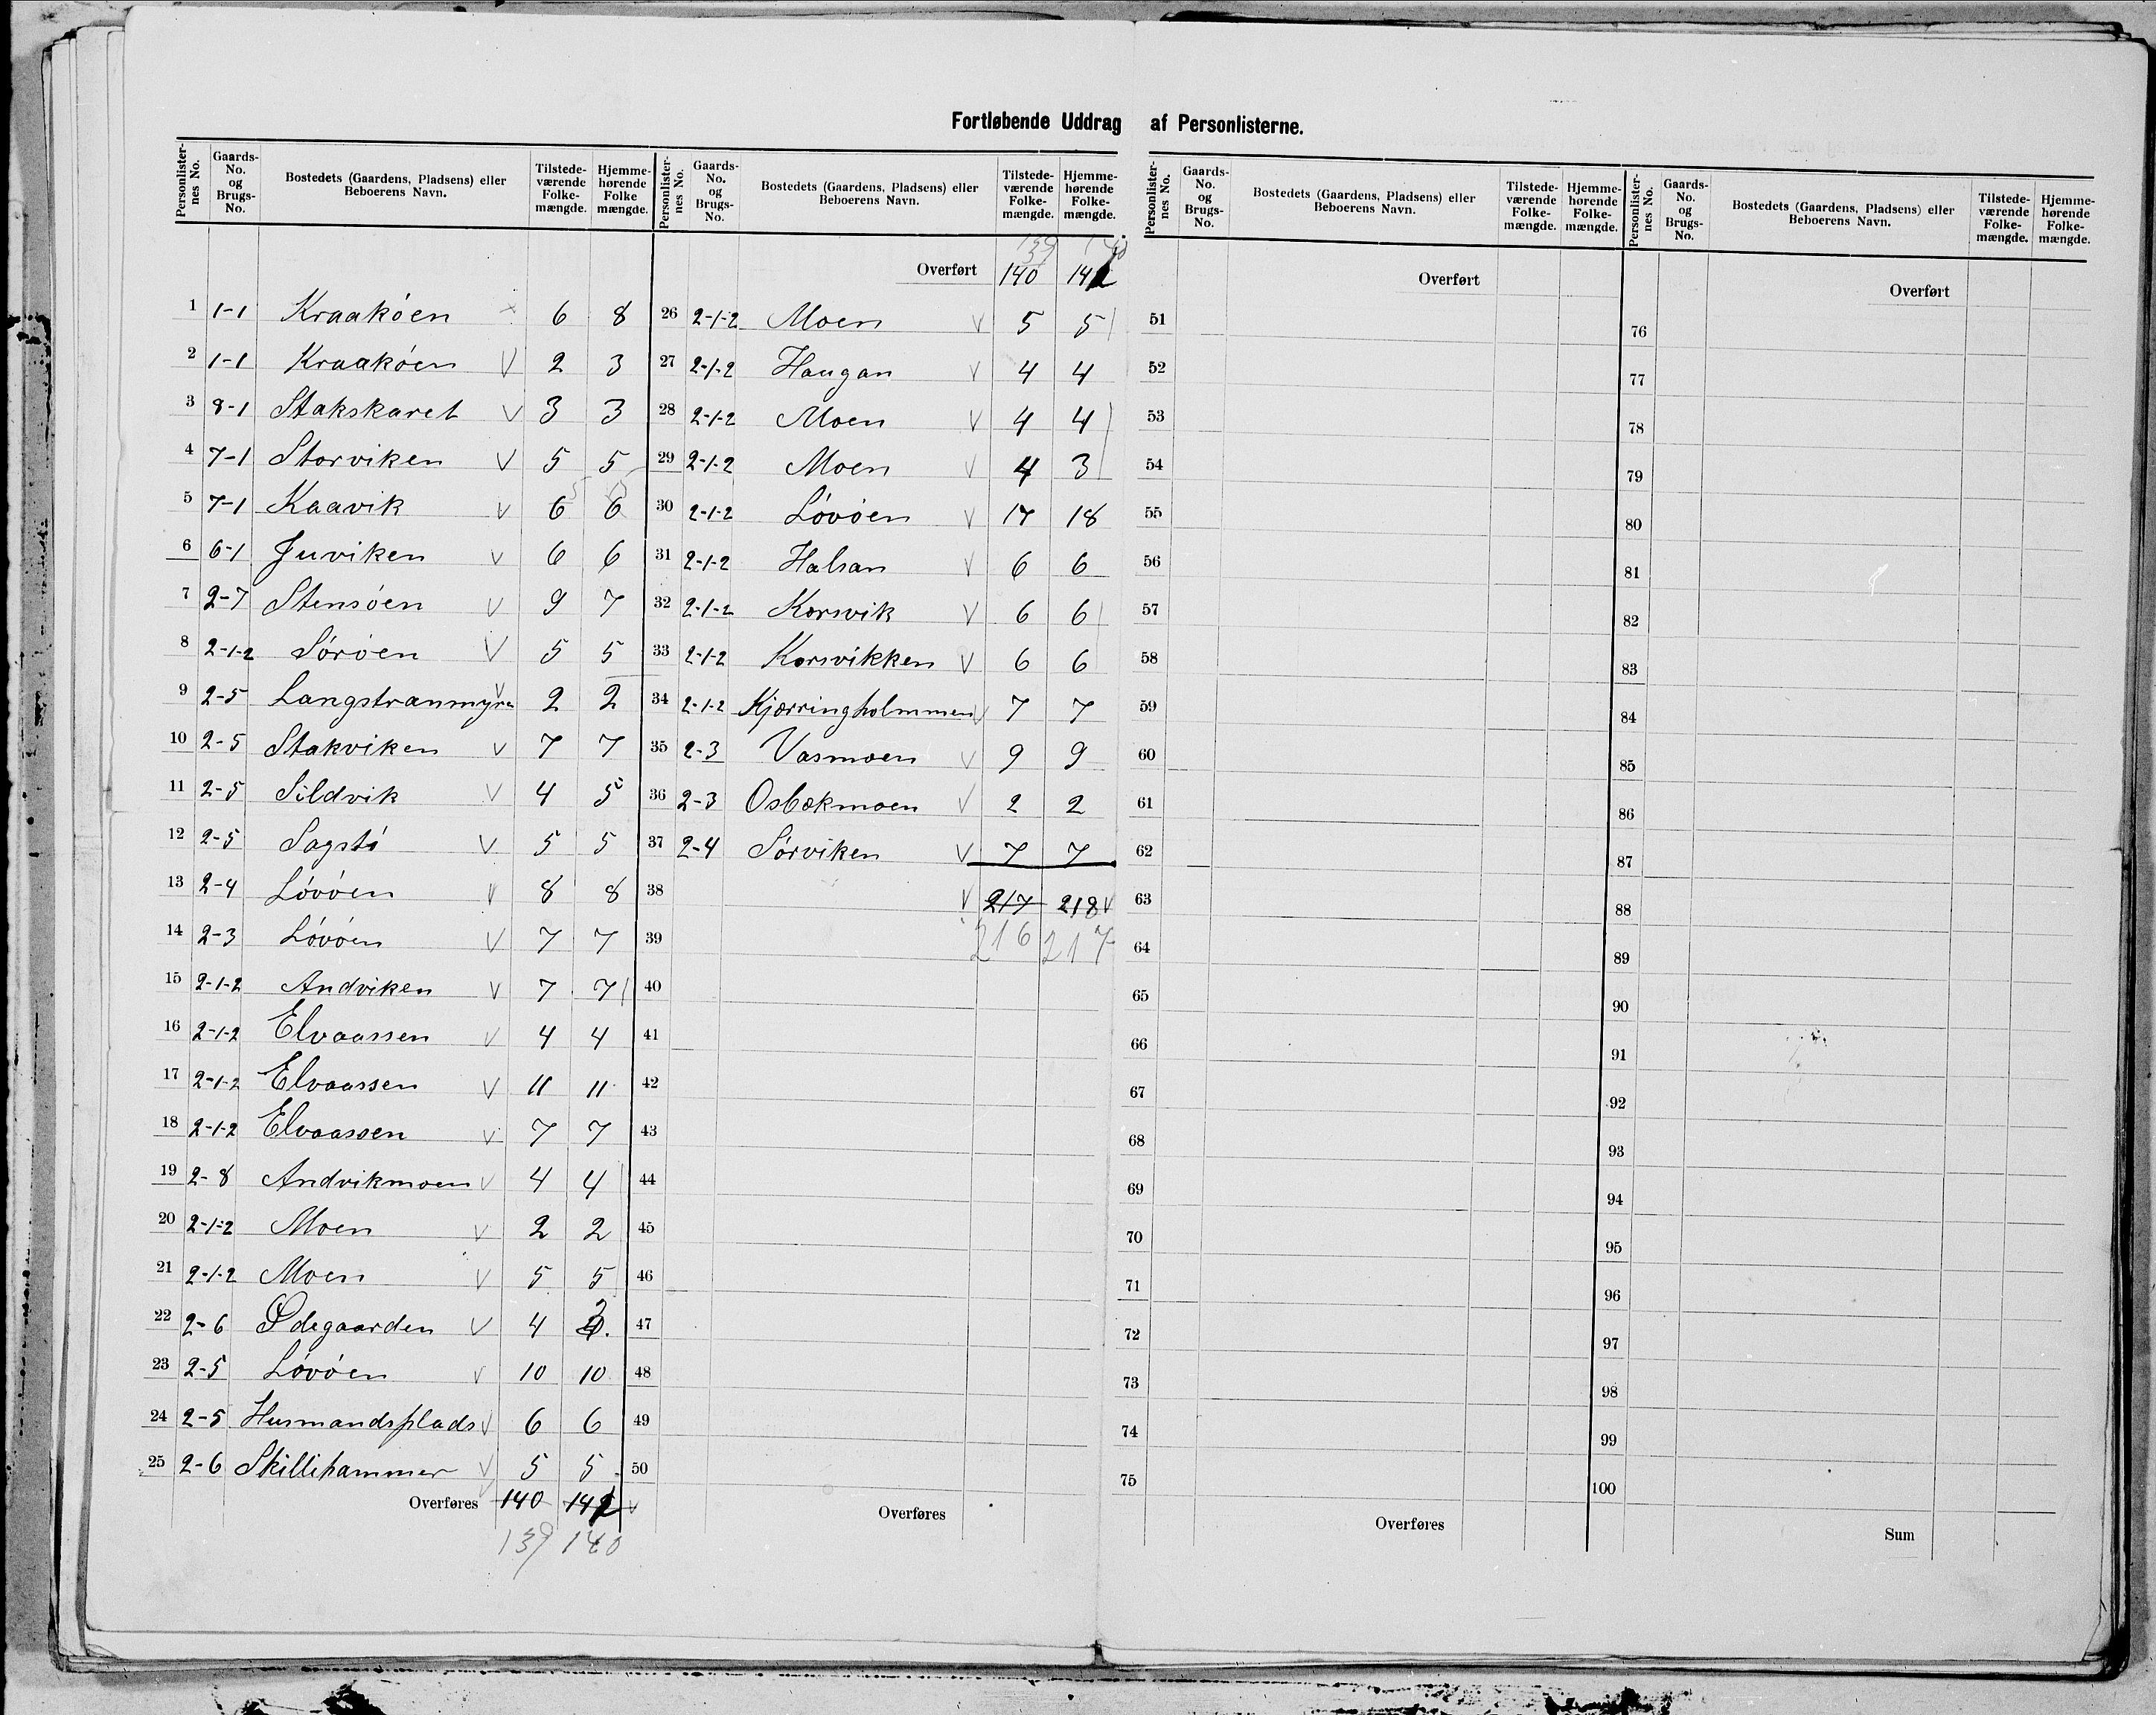 Fortløbende Uddrag af Personlisterne.
Personlister-nes No. | Gaards-No. og Brugs-No. | Bostedets (Gaardens, Pladsens) eller Beboerens Navn. | Tilstede-værende Folke-mængde. | Hjemme-hørende Folke mængde.
1 1-1 Kraakøen 6 8
2 1-1 Kraakøen V 2 3
3 8-1 Stakskaret V 3 3
4 7-1 Storviken V 5 5
5 7-1 Kaavik V 6 6 5 5
6 6-1 Juviken V 6 6
7 2-7 Stensøen V 9 7
8 2-1-2 Sørøen V 5 5
9 2-5 Langstranmyra V 2 2
10 2-5 Stakviken V 7 7
11 2-5 Sildvik V 4 5
12 2-5 Sagstø V 5 5
13 2-4 Løvøen V 8 8
14 2-3 Løvøen V 7 7
15 2-1-2 Andviken V 7 7
16 2-1-2 Elvaassen V 4 4
17 2-1-2 Elvaassen V 11 11
18 2-1-2 Elvaassen V 7 7
19 2-8 Andvikmoen V 4 4
20 2-1-2 Moen V 2 2
21 2-1-2 Moen V 5 5
22 2-6 Ødegaarden V 4 3
23 2-5 Løvøen V 10 10
24 2-5 Husmandsplads V 6 6
25 2-6 Skillihammer V 5 5
Overføres 140 142 V
139 140
Personlister-nes No. | Gaards-No. og Brugs-No. | Bostedets (Gaardens, Pladsens) eller Beboerens Navn. | Tilstede-værende Folke-mængde. | Hjemme-hørende Folke-mængde.
139 140
Overført 140 142
26 2-1-2 Moen V 5 5
27 2-1-2 Haugan V 4 4
28 2-1-2 Moen V 4 4
29 2-1-2 Moen V 4 3
30 2-1-2 Løvøen V 17 18
31 2-1-2 Halsan V 6 6
32 2-1-2 Korsvik V 6 6
33 2-1-2 Korsvikken V 6 6
34 2-1-2 Kjærringholmmen V 7 7
35 2-3 Vasmoen V 9 9
36 2-3 Osbækmoen V 2 2
37 2-4 Sørviken V 7 7
38 V 217 218 V
39 216 217
40
41
42
43
44
45
46
47
48
49
50
Overføres
Personlister-nes No. | Gaards-No. og Brugs-No. | Bostedets (Gaardens, Pladsens) eller Beboerens Navn. | Tilstede-værende Folke-mængde. | Hjemme-hørende Folke-mængde.
Overført
51
52
53
54
55
56
57
58
59
60
61
62
63
64
65
66
67
68
69
70
71
72
73
74
75
Overføres
Personlister-nes No. | Gaards-No. og Brugs-No. | Bostedets (Gaardens, Pladsens) eller Beboerens Navn. | Tilstede-værende Folke-mængde. | Hjemme-hørende Folke-mængde.
Overført
76
77
78
79
80
81
82
83
84
85
86
87
88
89
90
91
92
93
94
95
96
97
98
99
100
Sum